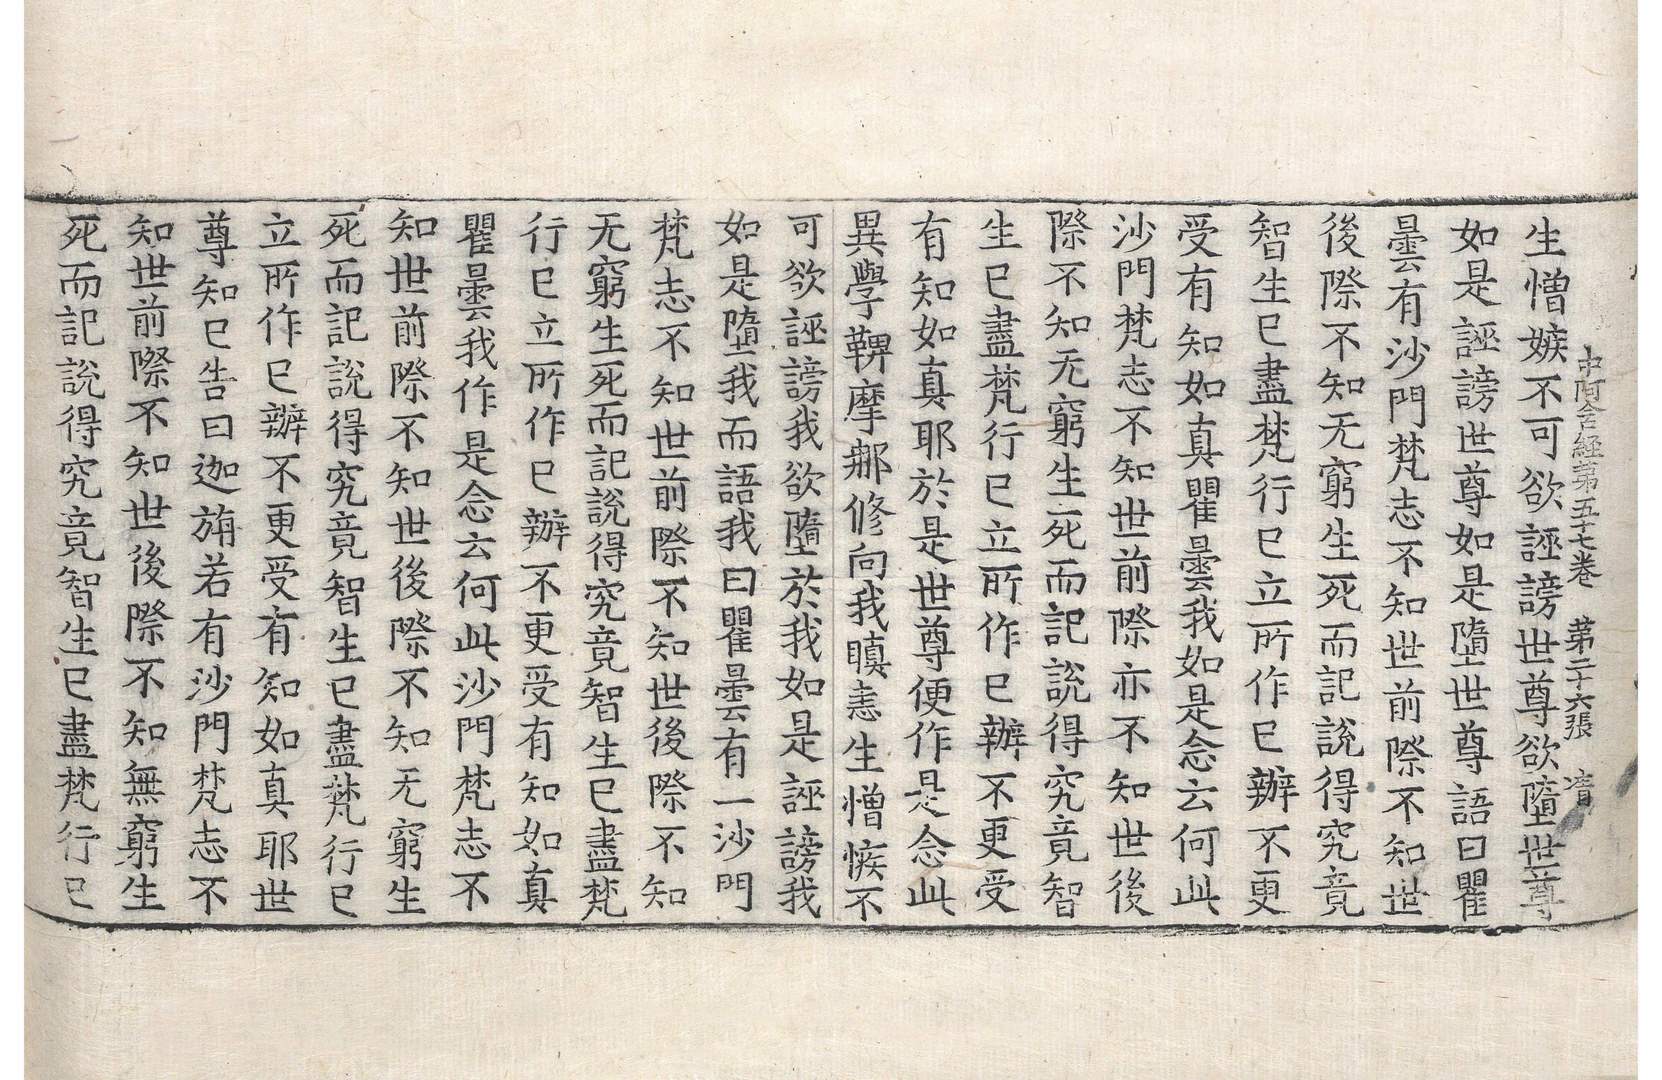 中阿含経第五十七卷 第二十六張
生憎嫉不可欲誣謗世尊欲墮世尊
如是誣謗世尊如是墮世尊語曰瞿
曇有沙門梵志不知世前際不知世
後際不知无窮生死而記說得究竟
智生已盡梵行已立所作已辦不更
受有知如真瞿曇我如是念云何此
沙門梵志不知世前際亦不知世後
際不知无窮生死而記說得究竟智
生已盡梵行已立所作已辦不更受
有知如真耶於是世尊便作是念此
異學鞞摩那修向我瞋恚生憎嫉不
可欲誣謗我欲墮於我如是誣謗我
如是墮我而語我曰瞿曇有一沙門
梵志不知世前際不知世後際不知
无窮生死而記說得究竟智生已盡梵
行已立所作已辦不更受有知如真
瞿曇我作是念云何此沙門梵志不
知世前際不知世後際不知无窮生
死而記說得究竟智生已盡梵行已
立所作已辦不更受有知如真耶世
尊知已告曰迦旃若有沙門梵志不
知世前際不知世後際不知無窮生
死而記說得究竟智生已盡梵行已